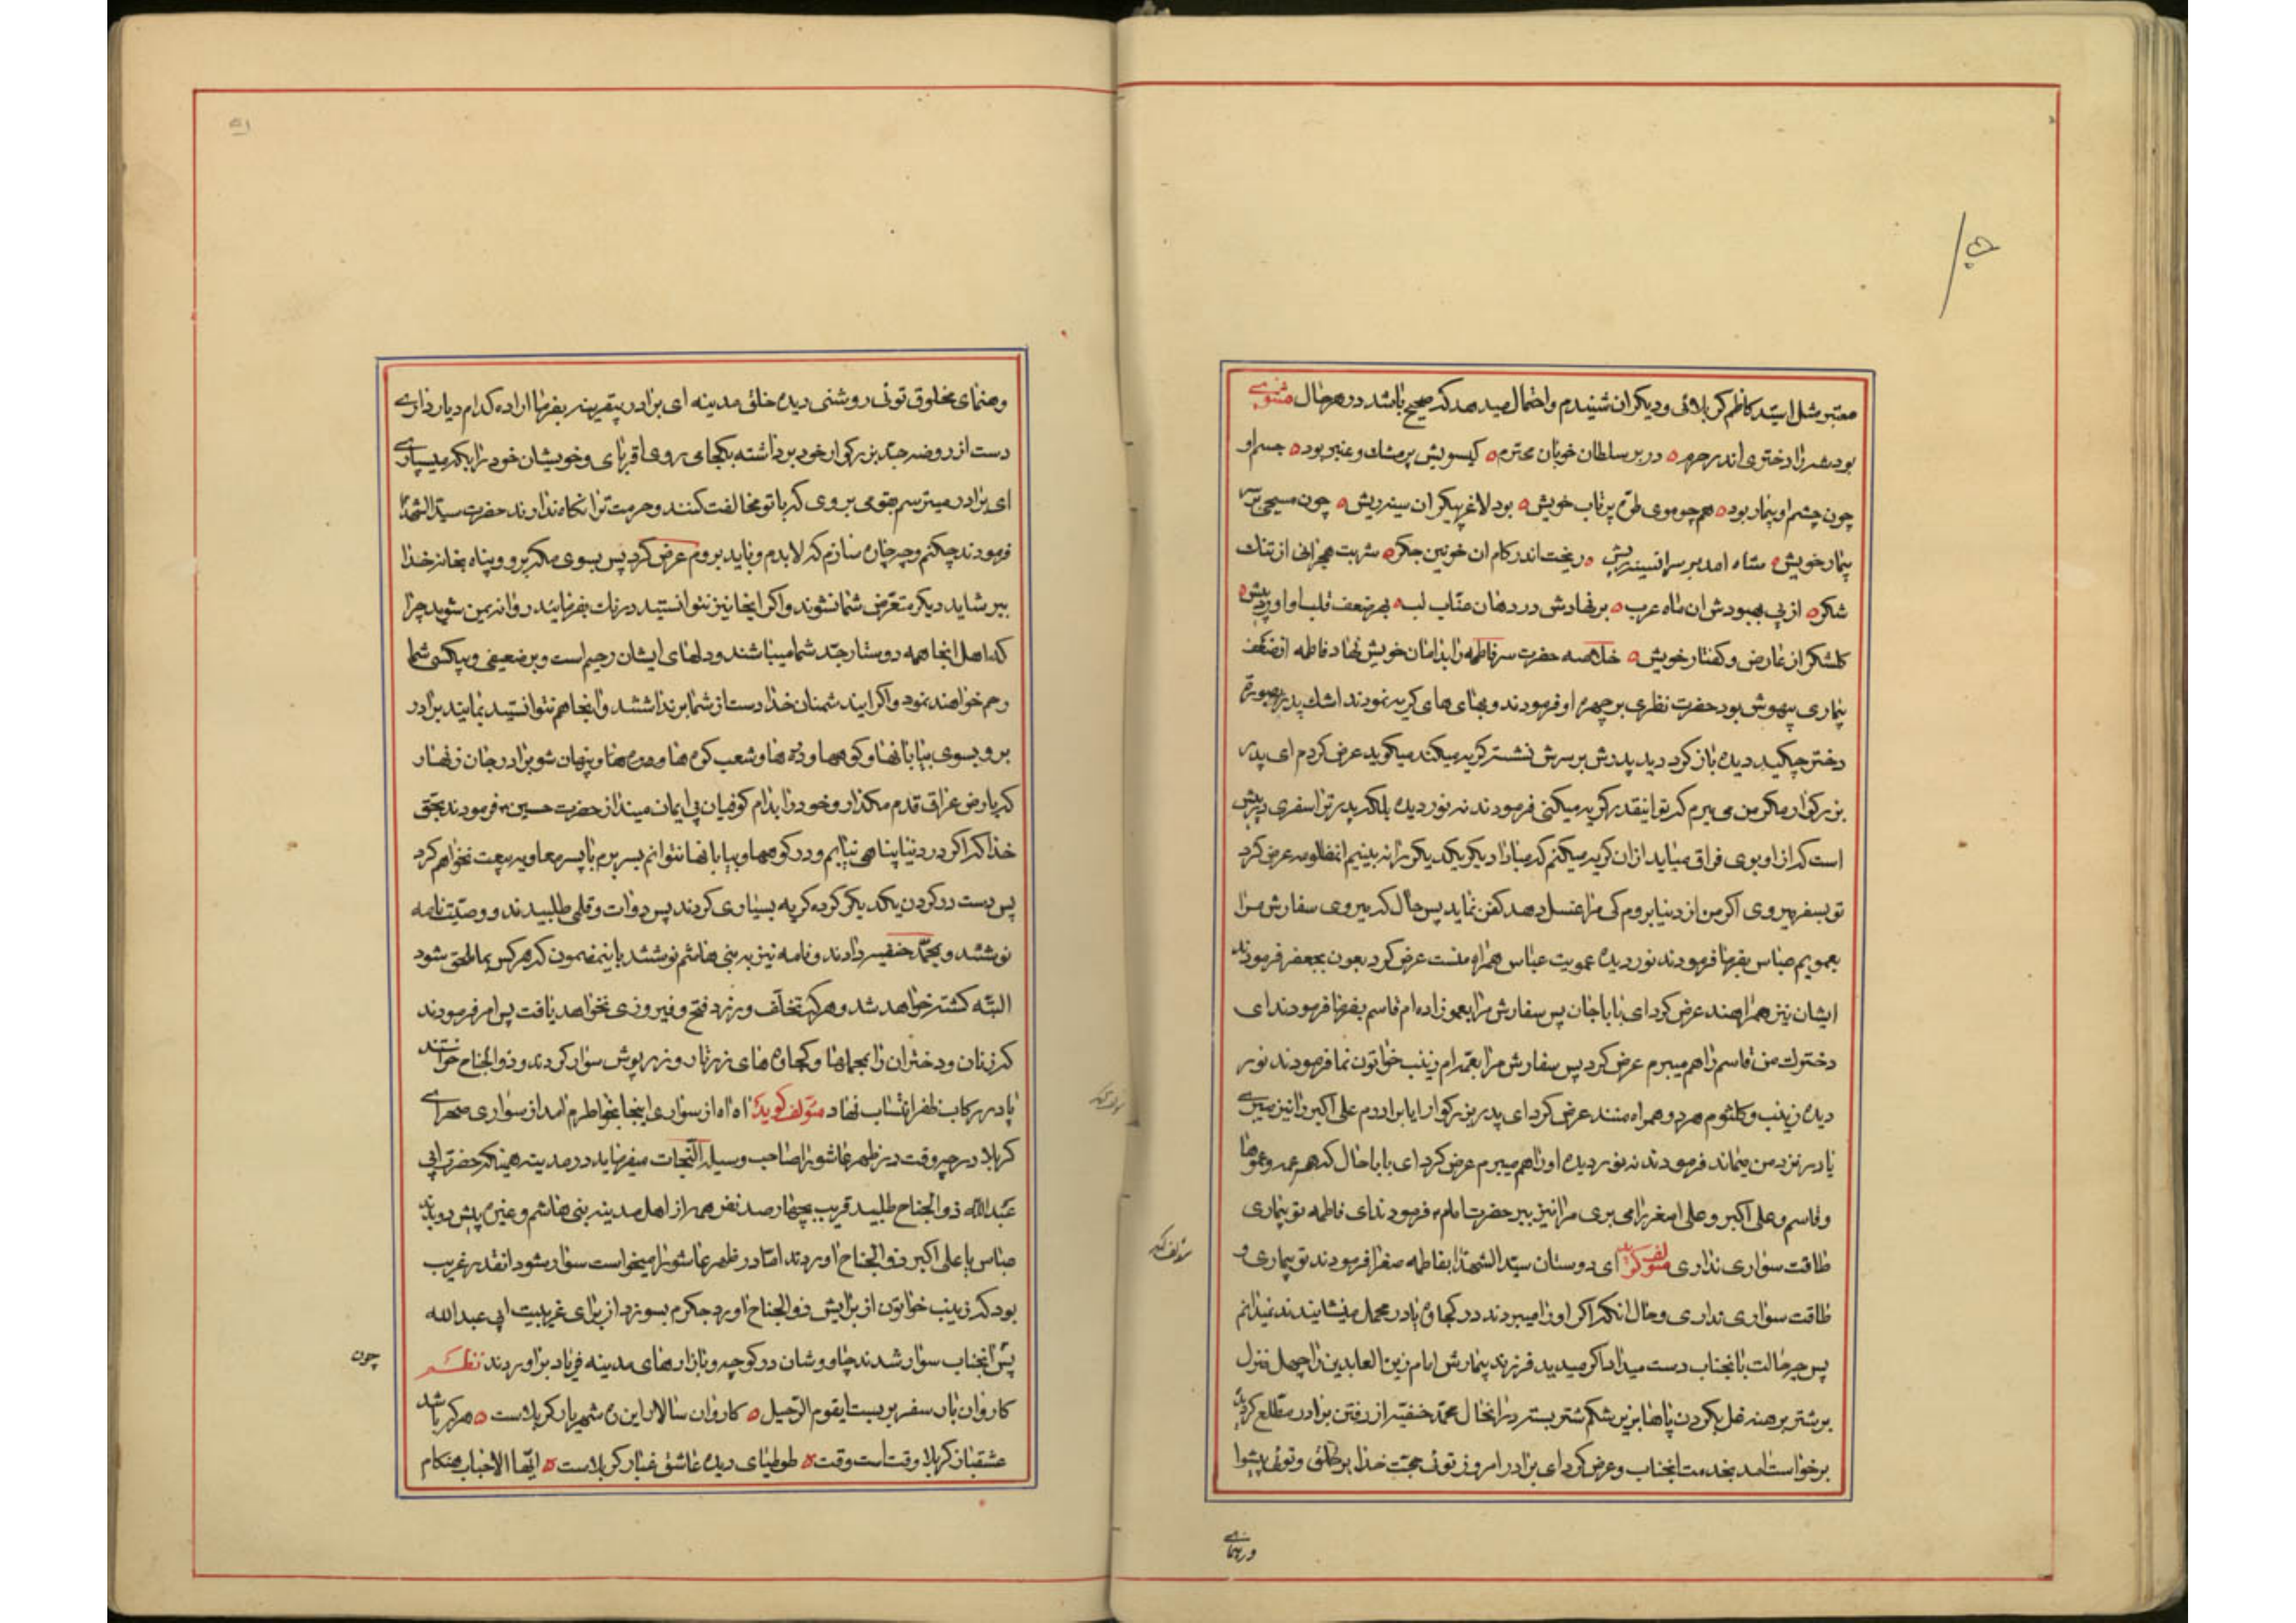 معتبر مثل اسید کاظم کربلائی و دیگران شنیدم و احتمال میدهد که صحیح باشد در هر حال مثنوی
بود شه را دختری اندر حرم ه در بر سلطان خوبان محترم ه کیسویش پر مشک و عنبر بود ه جسم او
چون چشم او بیمار بود ه همچو موی طره پرتاب خویش ه بود لاغر پیکر ان سینه ریش ه چون مسیحی بر سر
بیمار خویش ه شاه امد بر سر ان سینه ریش ه ریخت اندر کام ان خونین جکر ه شربت هجرانی از تنک
شکر ه از پی بهبودش ان ماه عرب ه بر نهادش در دهان عناب لب ه بهر ضعف قلب او اورد پیش ه
کلشکر از عارض و کفتار خویش ه خلاصه حضرت سر فاطمه را بدامان خویش نهاد فاطمه از ضعف
بیماری بیهوش بود حضرت نظری بر چهره او فرمودند و بهای های کریه نمودند اشک پدر بر صورت
دختر چکید دیده باز کرد دید پدرش بر سرش نشسته کریه میکند میکوید عرض کردم ای پدر
بزرکوار مکر من می میرم که تو اینقدر کریه میکنی فرمودند نه نور دیده بلکه پدر ترا سفری در پیش
است که از او بوی فراق میاید از ان کریه میکنم که مبادا دیکر یکدیکر را نه بینیم انمظلومه عرض کرد
تو بسفر میروی اکر من از دنیا بروم کی مرا غسل دهد کفن نماید پس حال که میروی سفارش مرا
بعمویم عباس بفرما فرمودند نور دیده عمویت عباس همراه منست عرض کرد بعون بجعفر فرمودند
ایشان نیز همراهند عرض کرد ای بابا جان پس سفارش مرا بعموزاده ام قاسم بفرما فرمودند ای
دخترک من قاسم را هم میبرم عرض کرد پس سفارش مرا بعمه ام زینب خواتون نما فرمودند نور
دیده زینب و کلثوم هر دو همراه منند عرض کرد ای پدر بزرکوار ایا برادرم علی اکبر را نیز میبری
یا در نزد من میماند فرمودند نه نور دیده او را هم میبرم عرض کرد ای بابا حال که هم عمه و عموها
و قاسم و علی اکبر و علی اصغر را می بری مرا نیز ببر حضرت امام فرمودند ای فاطمه تو بیماری
طاقت سواری نداری مؤلف کوید ای دوستان سید الشهدا بفاطمه صغرا فرمودند تو بیماری و
طاقت سواری نداری و حال انکه اکر او را میبردند در کجاوه یا در محمل مینشانیدند نمیدانم
پس چه حالت بانجناب دست میداد اکر میدید فرزند بیمارش امام زین العابدین را چهل منزل
بر شتر برهنه غل بکردن پاها بزیر شکم شتر بسته در انحال محمد حنفیه از رفتن برادر مطلع کردید
برخواست امد بخدمت انجناب و عرض کرد ای برادر امروز توئی حجت خدا بر خلق و توئی پیشوا
و رهنمای
و هنمای مخلوق توئی روشنی دیده خلق مدینه ای برادر بفرما اراده کدام دیار داری
دست از روضه جد بزرکوار خود برداشته بکجای روی اقربای و خویشان خود را بکه میسپاری
ای برادر میترسم بقومی بروی که با تو مخالفت کنند و حرمت ترا نکاه ندارند حضرت سید الشهدا
فرمودند چکنم و چه چاره سازم که لابدم و باید بروم عرض کرد پس بسوی مکه برو و پناه بخانه خدا
ببر شاید دیکر متعرض شما نشوند و اکر انجا نیز نتوانستید درنک بفرمایید روانه یمن شوید چرا
که اهل انجا همه دوستار جد شما میباشند و دلهای ایشان رحیم است و بر ضعیفی و بیکسی شما
رحم خواهند نمود و اکر ایند شمنان خدا دست از شما برنداشتند و انجا هم نتوانستید بمانید برادر
برو بسوی بیابانها و کوهها و دره ها و شعب کوه ها و پنهان شو برادر جان زنهار
که بارض عراق قدم مکذار و خود را بدام کوفیان بی ایمان مینداز حضرت حسین فرمودند بحق
خدا که اکر در دنیا پناهی نیابم و در کوهها و بیابانها نتوانم بسر برم با پسر معاویه بیعت نخواهم کرد
پس دست در کردن یکدیکر کرده کریه بسیاری کردند پس دوات و قلمی طلبیدند و وصیت نامه
نوشتند و بمحمد حنفیه دادند و نامه نیز به بنی هاشم نوشتند باینمضمون که هر کس بما ملحق شود
البته کشته خواهد شد و هر که تخلف ورزد فتح و فیروزی نخواهد یافت پس امر فرمودند
که زنان و دختران را بمحملها و کجاوه های زرتار و زرپوش سوار کردند و ذوالجناح خواستند
پا در رکاب ظفر انتساب نهاد مؤلف کوید اه اه از سواری اینجا بخاطرم امد از سواری صحرای
کربلا در چه وقت در ظهر عاشورا صاحب وسیلة النجات میفرماید در مدینه همینکه حضرت ابی
عبدالله ذوالجناح طلبید قریب بچهار صد نفر همه از اهل مدینه بنی هاشم و غیره پیش دویدند
عباس با علی اکبر ذوالجناح اوردند اما در ظهر عاشورا میخواست سوار شود انقدر غریب
بود که زینب خواتون از برایش ذوالجناح اورد جکرم بسوزد از برای غریبیت ابی عبدالله
پس انجناب سوار شدند چاوشان در کوچه و بازارهای مدینه فریاد براوردند نظم
کاروان بار سفر بر بست یا قوم الرحیل ه کاروان سالار این ره شهریار کربلاست ه هر که باشد
عشقباز کربلا وقت است وقت ه طوطیای دیده عاشق غبار کربلاست ه ایها الاحباب هنکام
چون
مؤلف کوید